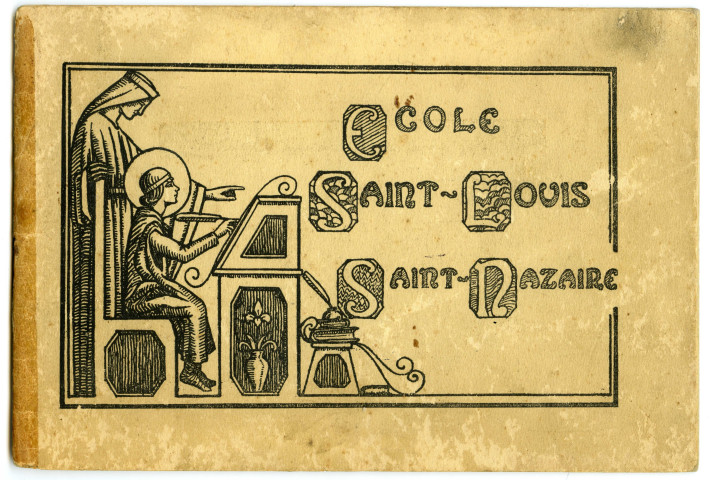 ECOLE
SAINT~LOUIS
SAINT~NAZAIRE